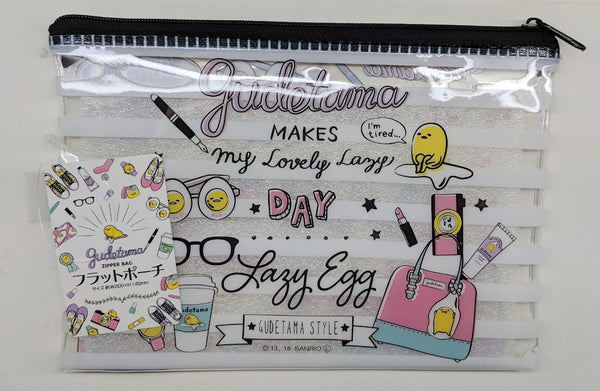 gudetama
MAKES
I'm
tired...
My Lovely Lazy
DAY
Lazy Egg
GUDETAMA STYLE
©'13, '18 SANRIO Ⓛ
gudetama
gudetama
gudetama
ZIPPER BAG
フラットポーチ
サイズ 約W200×H146mm